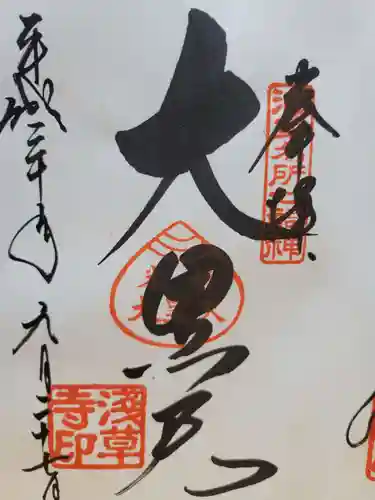 奉拝
浅草名所七福神
大黒天
平成二十年九月二十七日
淺草
寺印